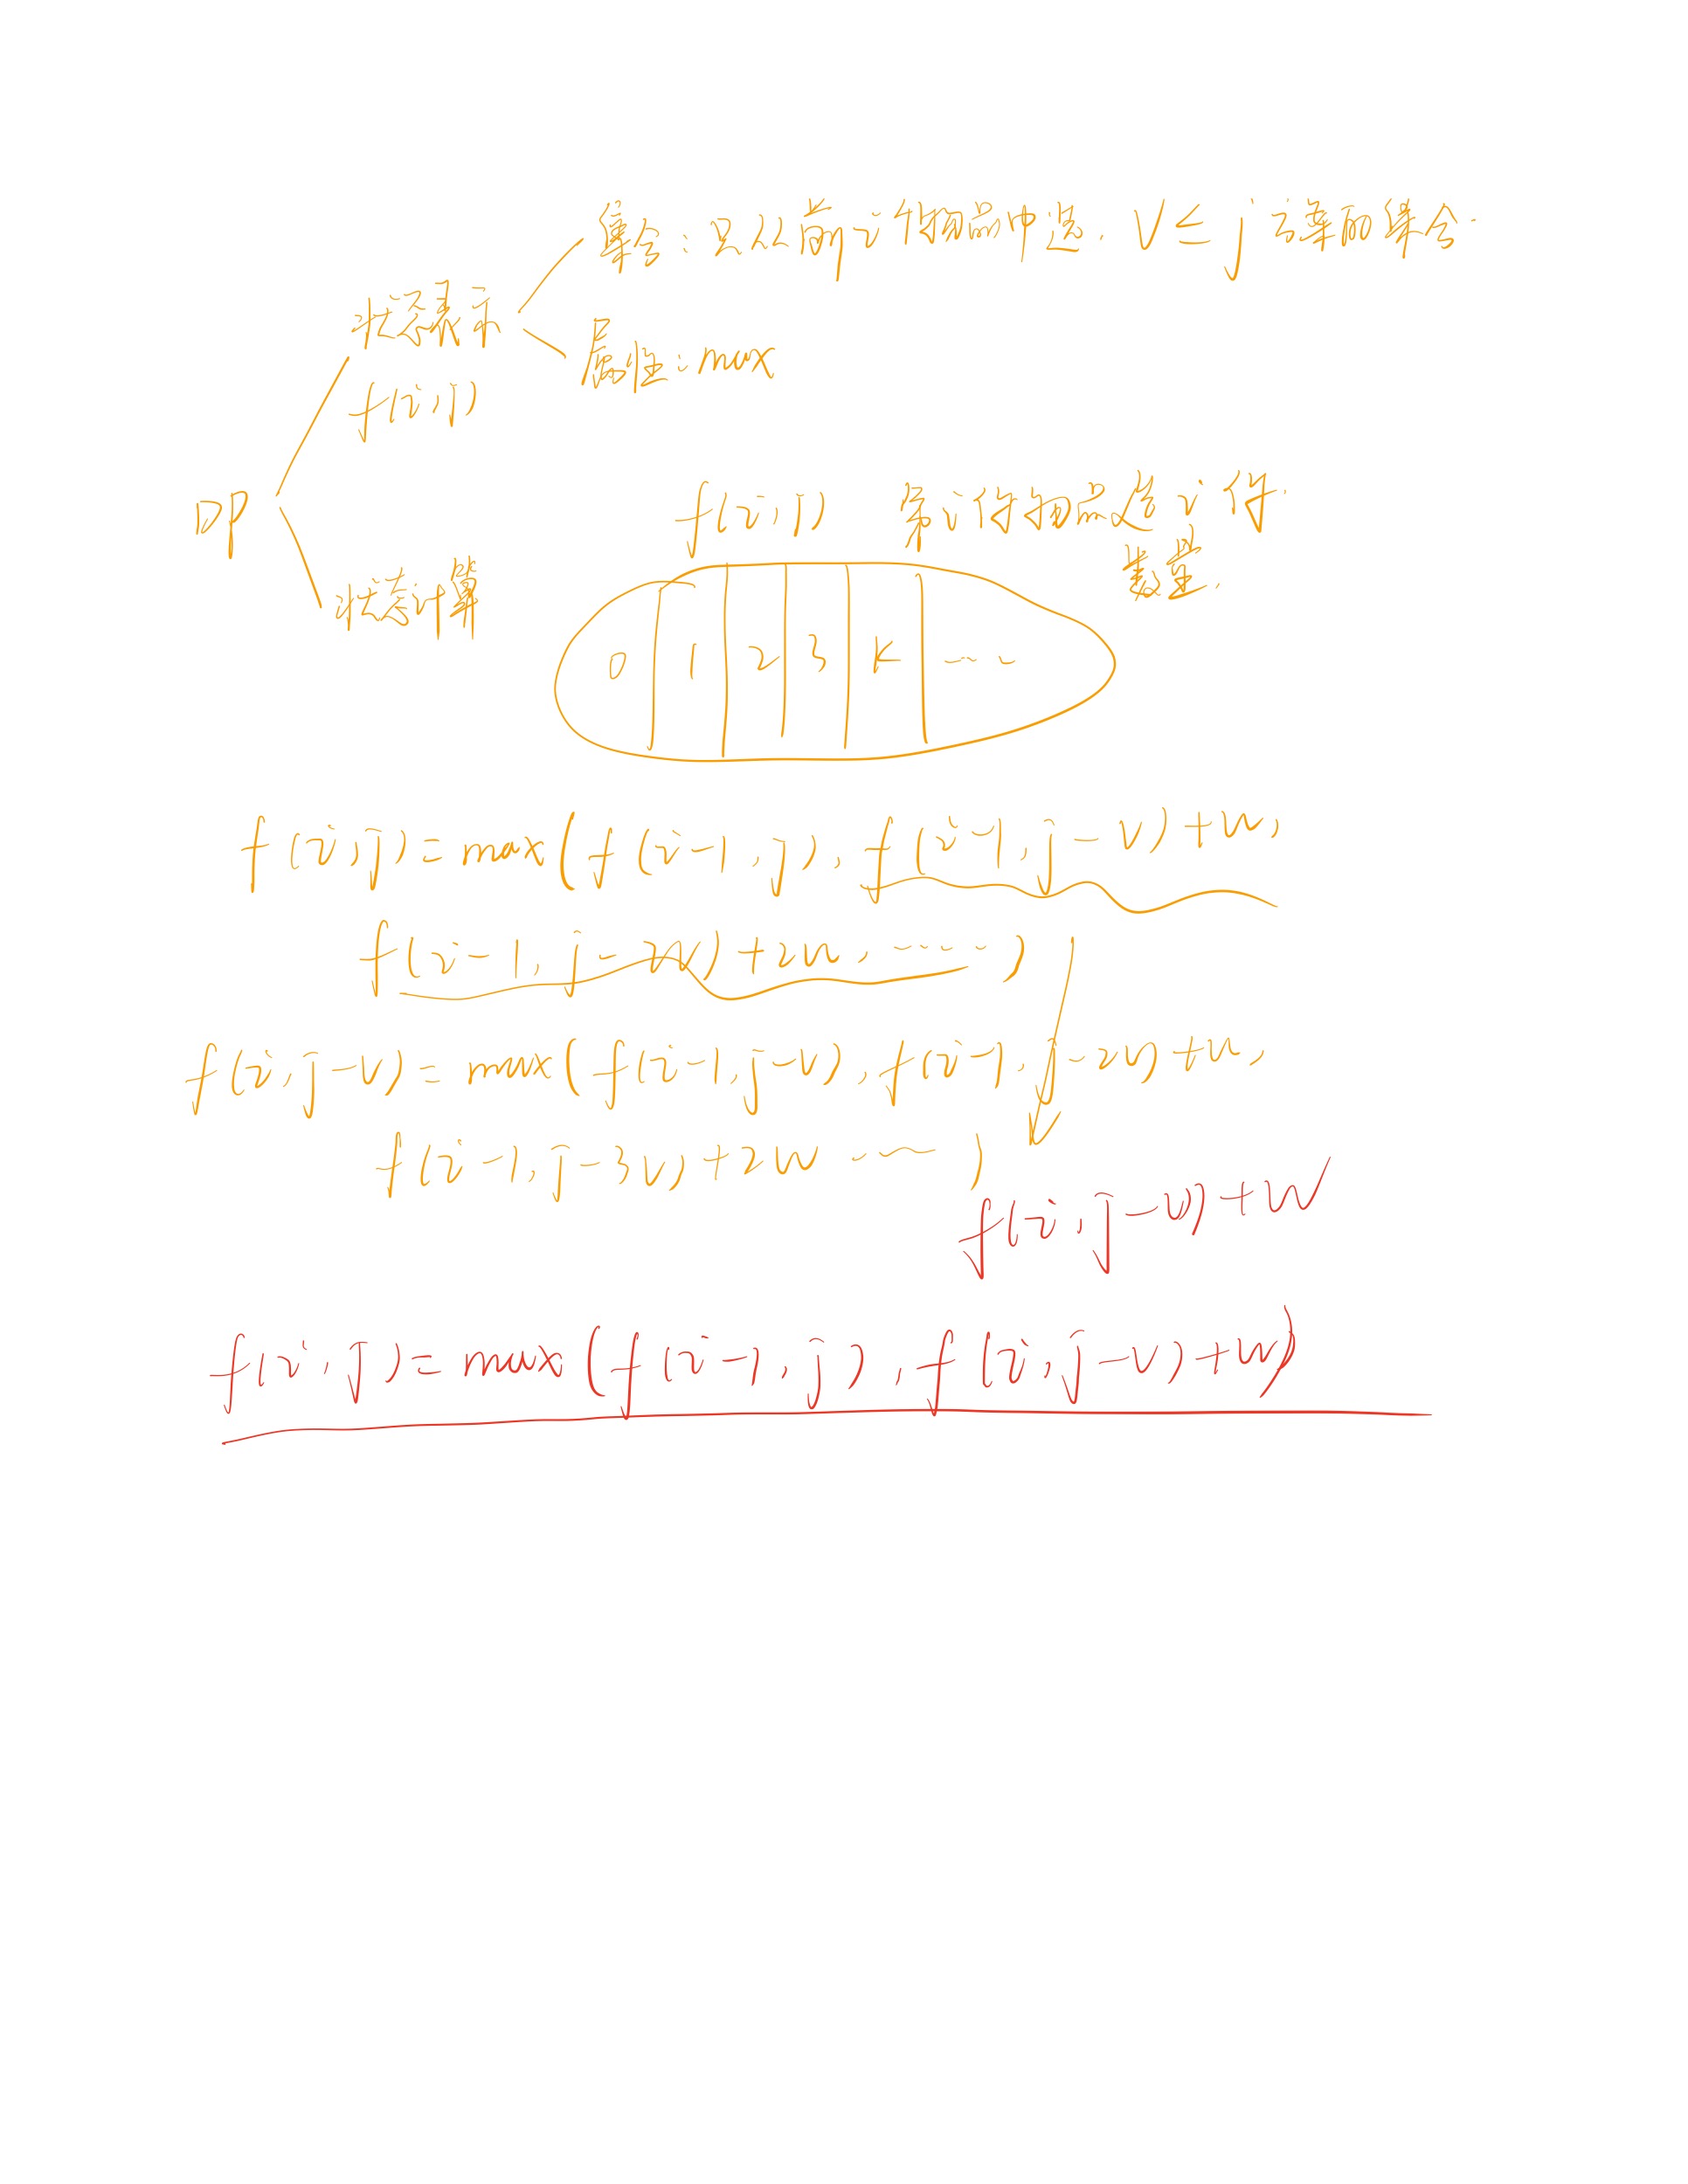 集合：只从前i个物品中选，V ≤ j 选择的集合.
状态表示
属性：max
f(i,j)
DP
f(i,j) 第i个物品选i件
数量.
状态计算
0 1 2 3 k ……
f(i,j) = max(f(i-1,j), f(i-1,j-v)+w,
f(i-1,j-2v)+2w, ……)
f(i,j-v) = max(f(i-1,j-v), f(i-1,j-2v)+w,
f(i-1,j-3v)+2w ……)
f(i,j-v)+w
f(i,j) = max(f(i-1,j), f(i,j-v)+w)